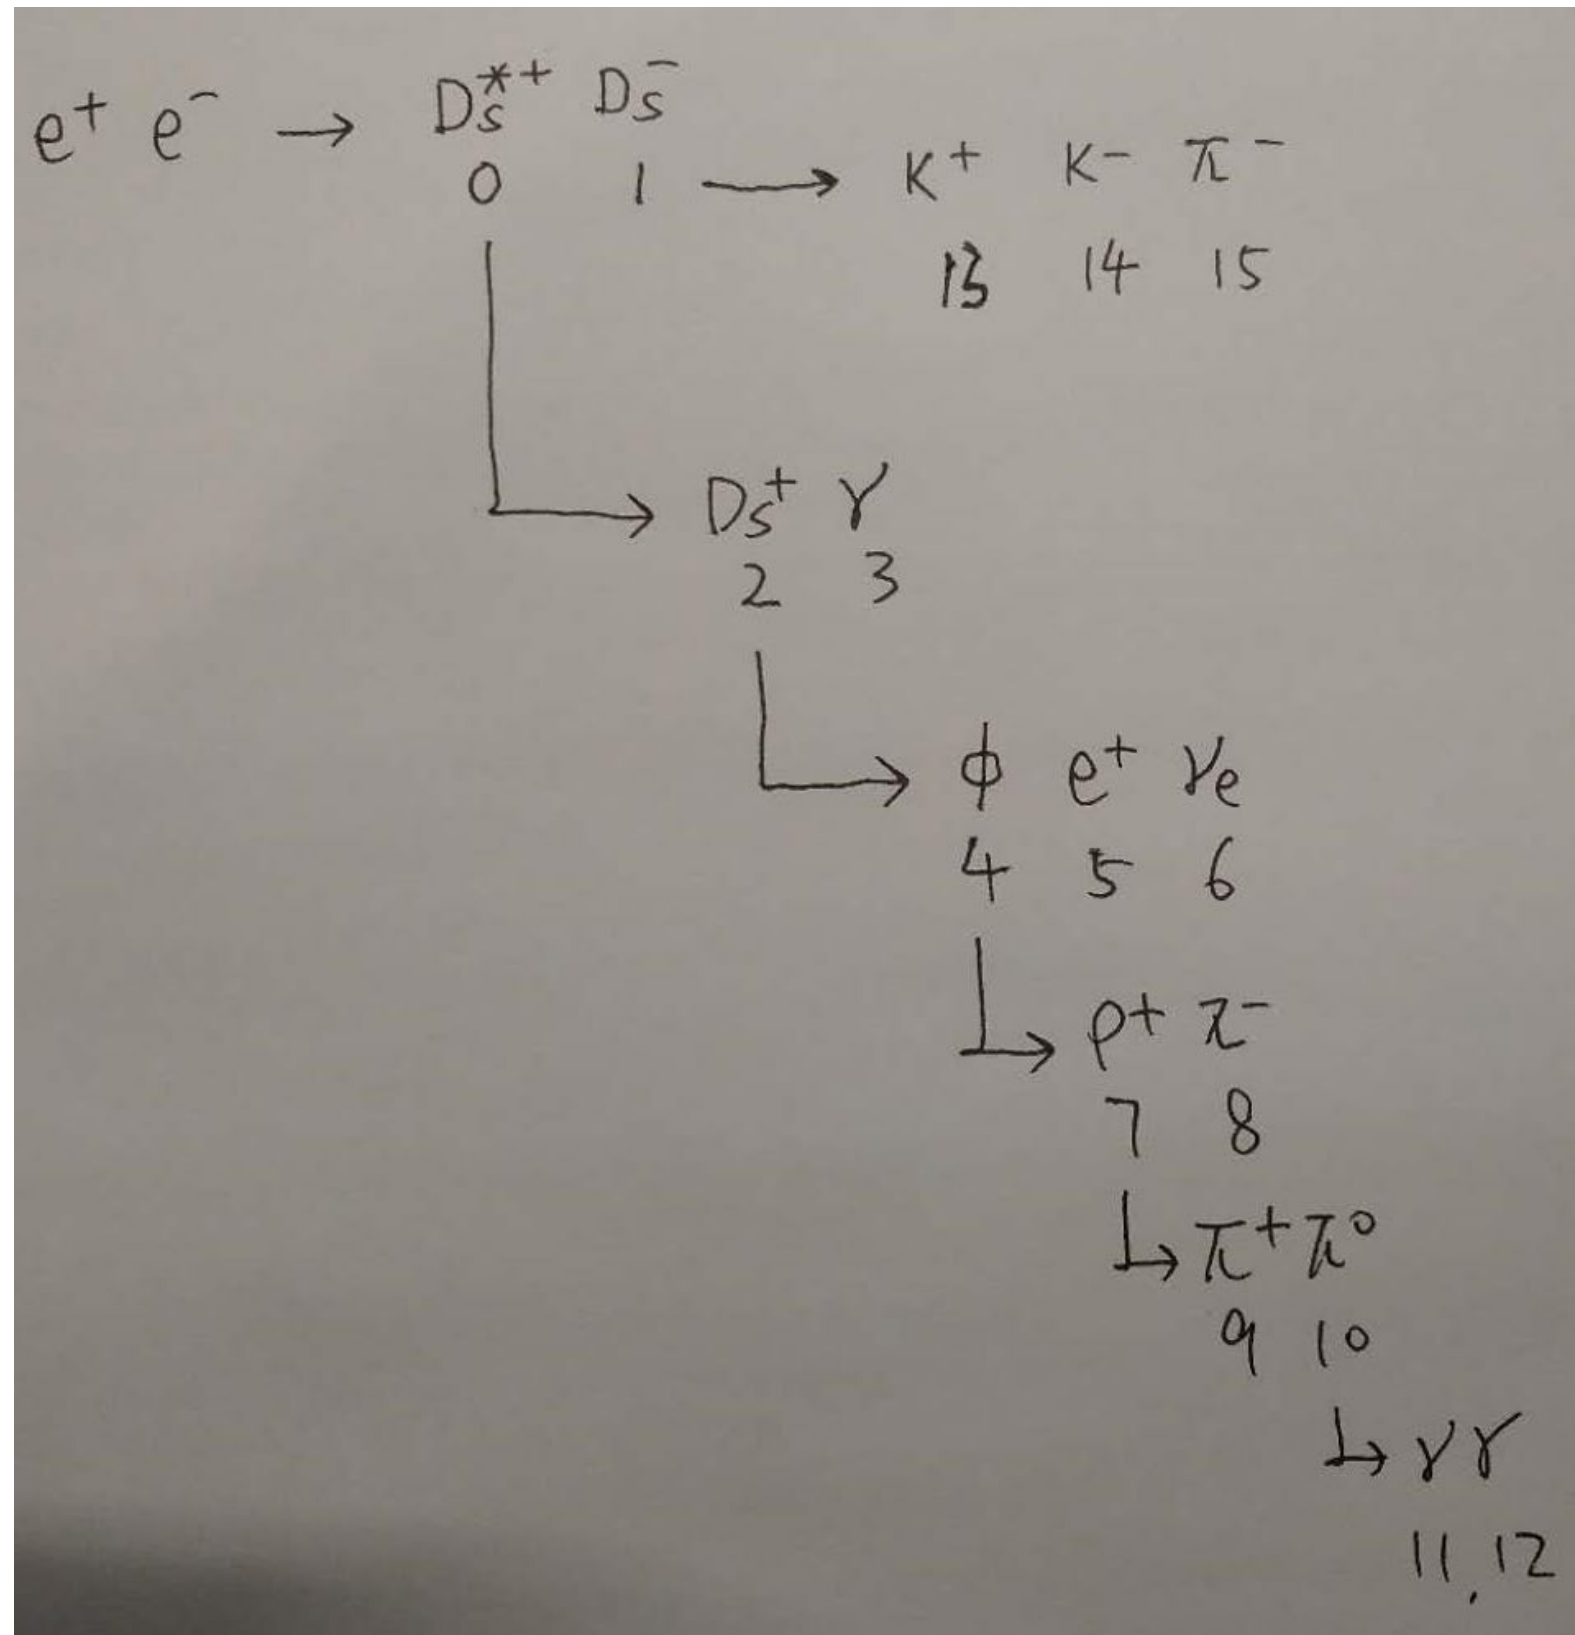 e⁺ e⁻ → Ds*⁺ Ds⁻
0 1 → K⁺ K⁻ π⁻
13 14 15
Ds⁺ γ
2 3
ϕ e⁺ νe
4 5 6
ρ⁺ π⁻
7 8
π⁺ π⁰
9 10
γ γ
11, 12